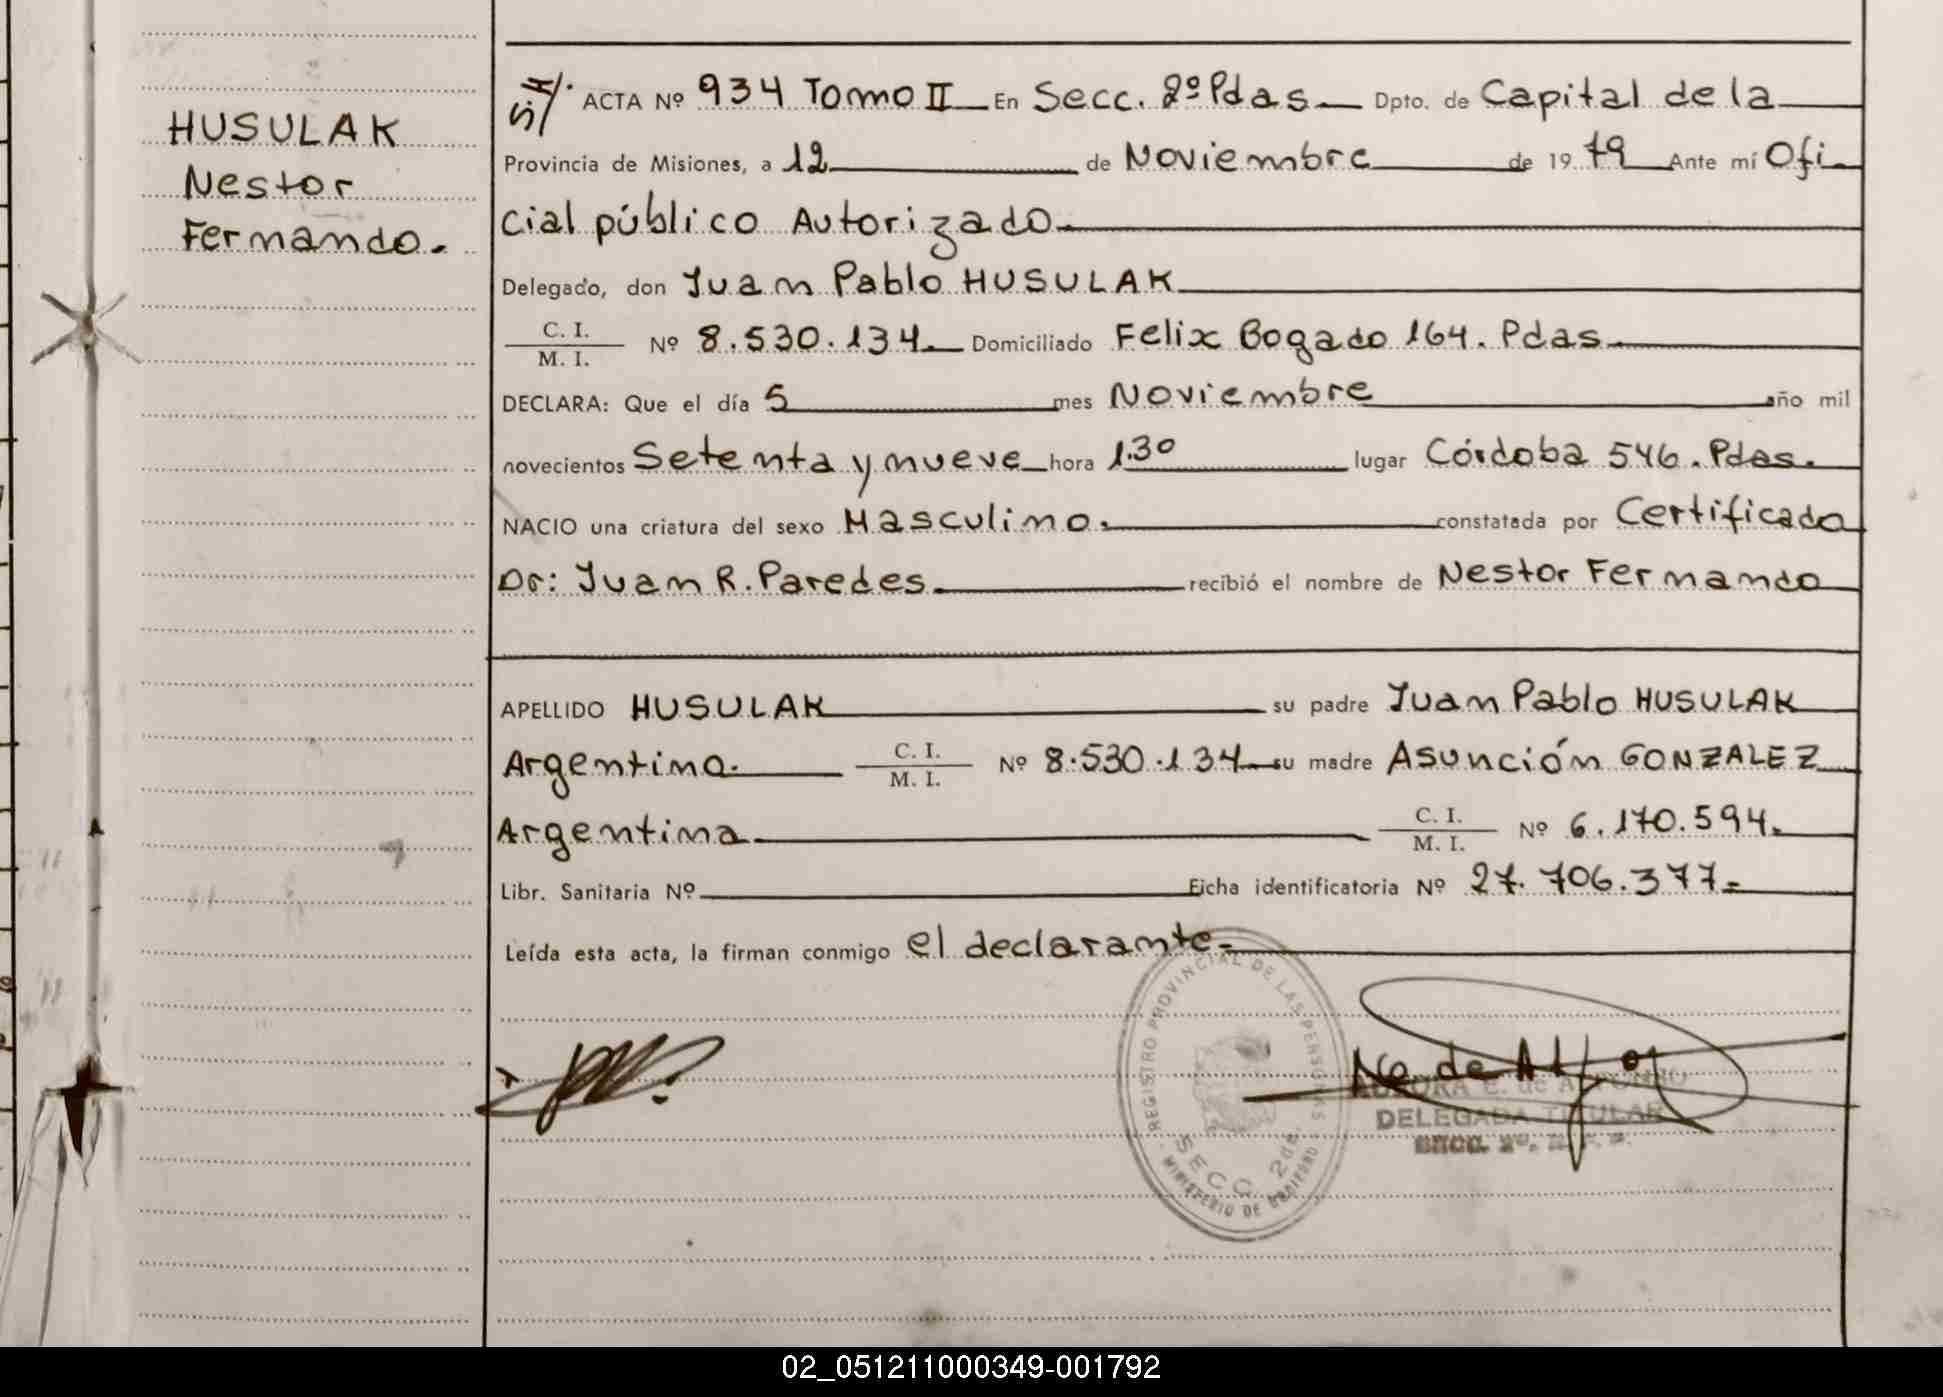 HUSULAK
Nestor
Fernando.
ACTA Nº 934 Tomo II En Secc. 2º Pdas Dpto. de Capital de la
Provincia de Misiones, a 12 de Noviembre de 1979 Ante mí Ofi
cial público Autorizado
Delegado, don Juan Pablo HUSULAK
C. I.
M. I. Nº 8.530.134. Domiciliado Felix Bogado 164. Pdas.
DECLARA: Que el día 5 mes Noviembre año mil
novecientos Setenta y nueve hora 1.30 lugar Córdoba 546. Pdas.
NACIO una criatura del sexo Masculino. constatada por Certificado
Dr: Juan R. Paredes. recibió el nombre de Nestor Fernando
APELLIDO HUSULAK su padre Juan Pablo HUSULAK
Argentino. C. I.
M. I. Nº 8.530.134 su madre Asunción GONZALEZ
Argentina. C. I.
M. I. Nº 6.170.594.
Libr. Sanitaria Nº Ficha identificatoria Nº 27.706.377.-
Leída esta acta, la firman conmigo el declarante.-
REGISTRO PROVINCIAL DE LAS PERSONAS
SECC. 2da.
MINISTERIO DE GOBIERNO
DELEGADA TITULAR
02_051211000349-001792